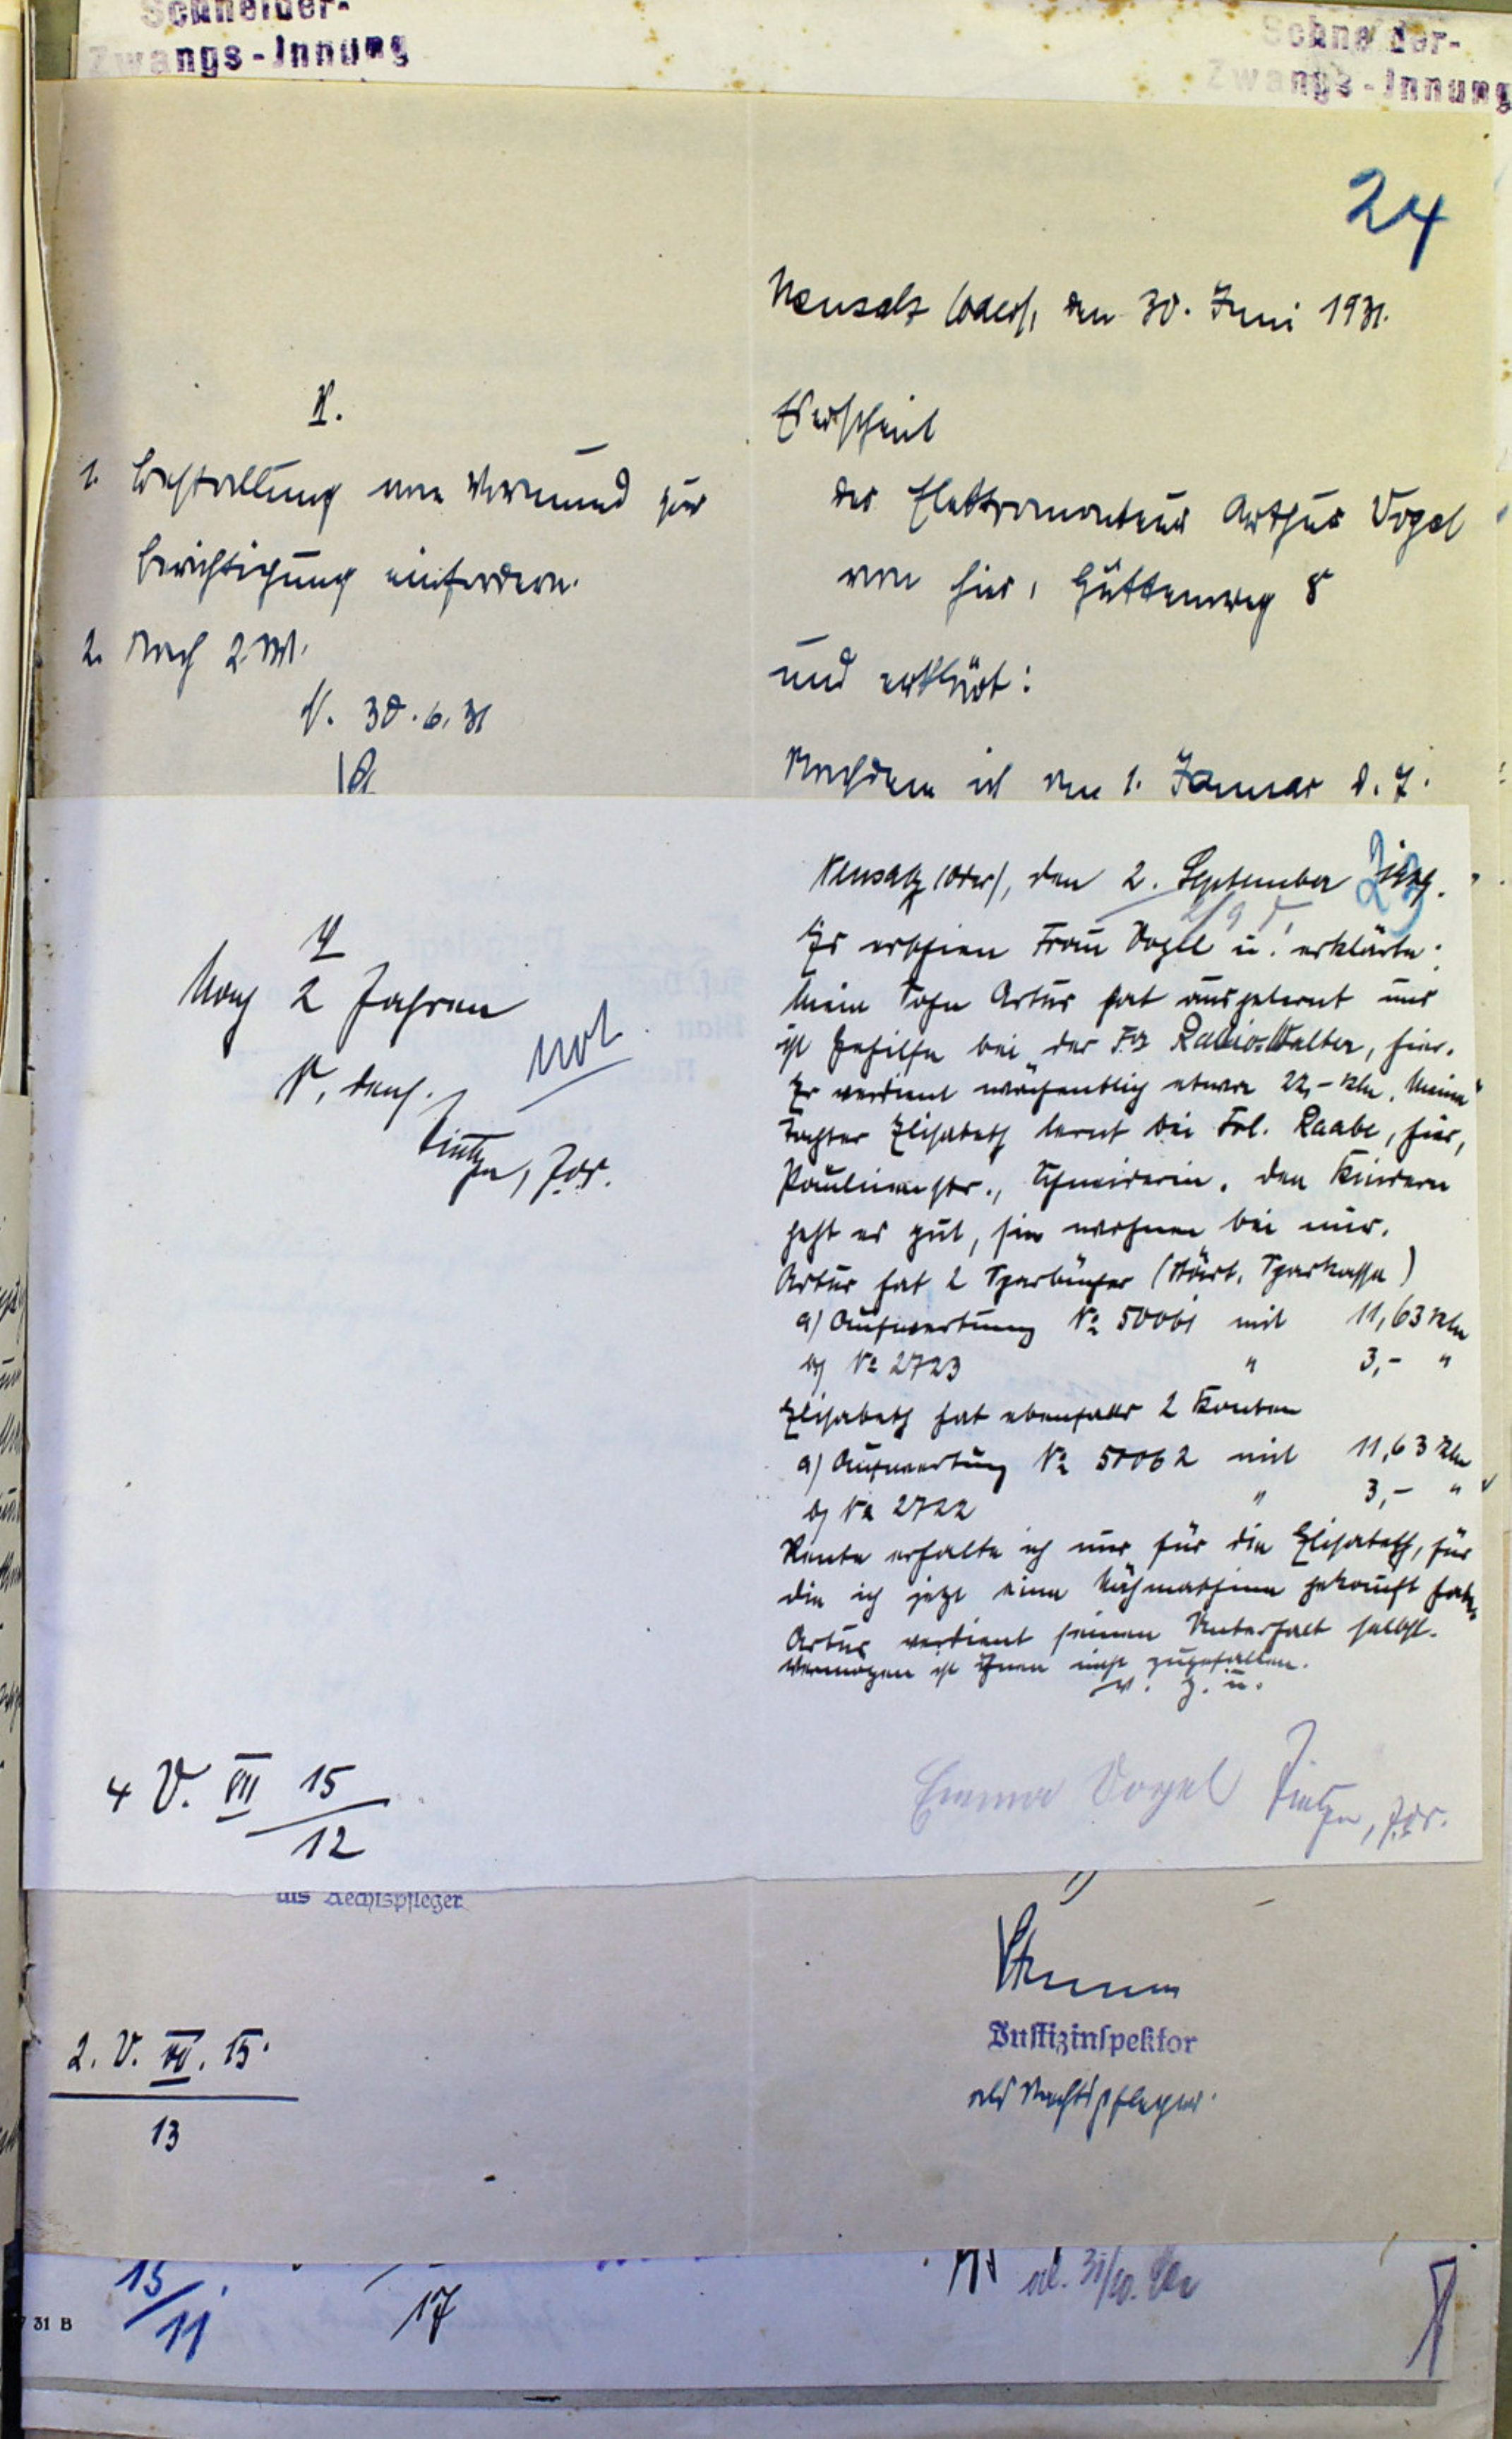 Schneider-
Zwangs-Innung
Schneider-
Zwangs-Innung
24
Neusalz (Oder), den 30. Juni 1931.
V.
1. Bestallung vom Vormund zur
Berichtigung einfordern.
2. Nach 2 W.
N. 30.6.31
Erscheint
der Elektromonteur Arthur Vogel
von hier, Hüttenweg 8
und erklärt:
Nachdem ich am 1. Januar d. J.
Neusalz (Oder), den 2. September
Es erschien Frau Vogel u. erklärte:
Mein Sohn Artur hat ausgelernt und
ist Gehilfe bei der Fa Radio-Walter, hier.
Er verdient wöchentlich etwa 22,- RM. Meine
Tochter Elisabeth lernt bei Frl. Raabe, hier,
Paulinenstr., Schneiderin. Den Kindern
geht es gut, sie wohnen bei mir.
Artur hat 2 Sparbücher (Städt. Sparkasse)
a) Aufwertung No 50061 mit 11,63 RM
b) No 2723 " 3,- "
Elisabeth hat ebenfalls 2 Konten
a) Aufwertung No 50062 mit 11,63 RM
b) No 2722 " 3,- "
Rente erhalte ich nur für die Elisabeth, für
die ich jetzt eine Nähmaschine gekauft habe.
Artur verdient seinen Unterhalt selbst.
Vermögen ist ihnen nicht zugefallen.
v. g. u.
Emma Vogel
V
Nach 2 Jahren
N, dens.
4 V. VII 15
12
als Rechtspfleger
Justizinspektor
als Rechtspfleger.
2. V. VII. 15.
13
15/11
17
31 B